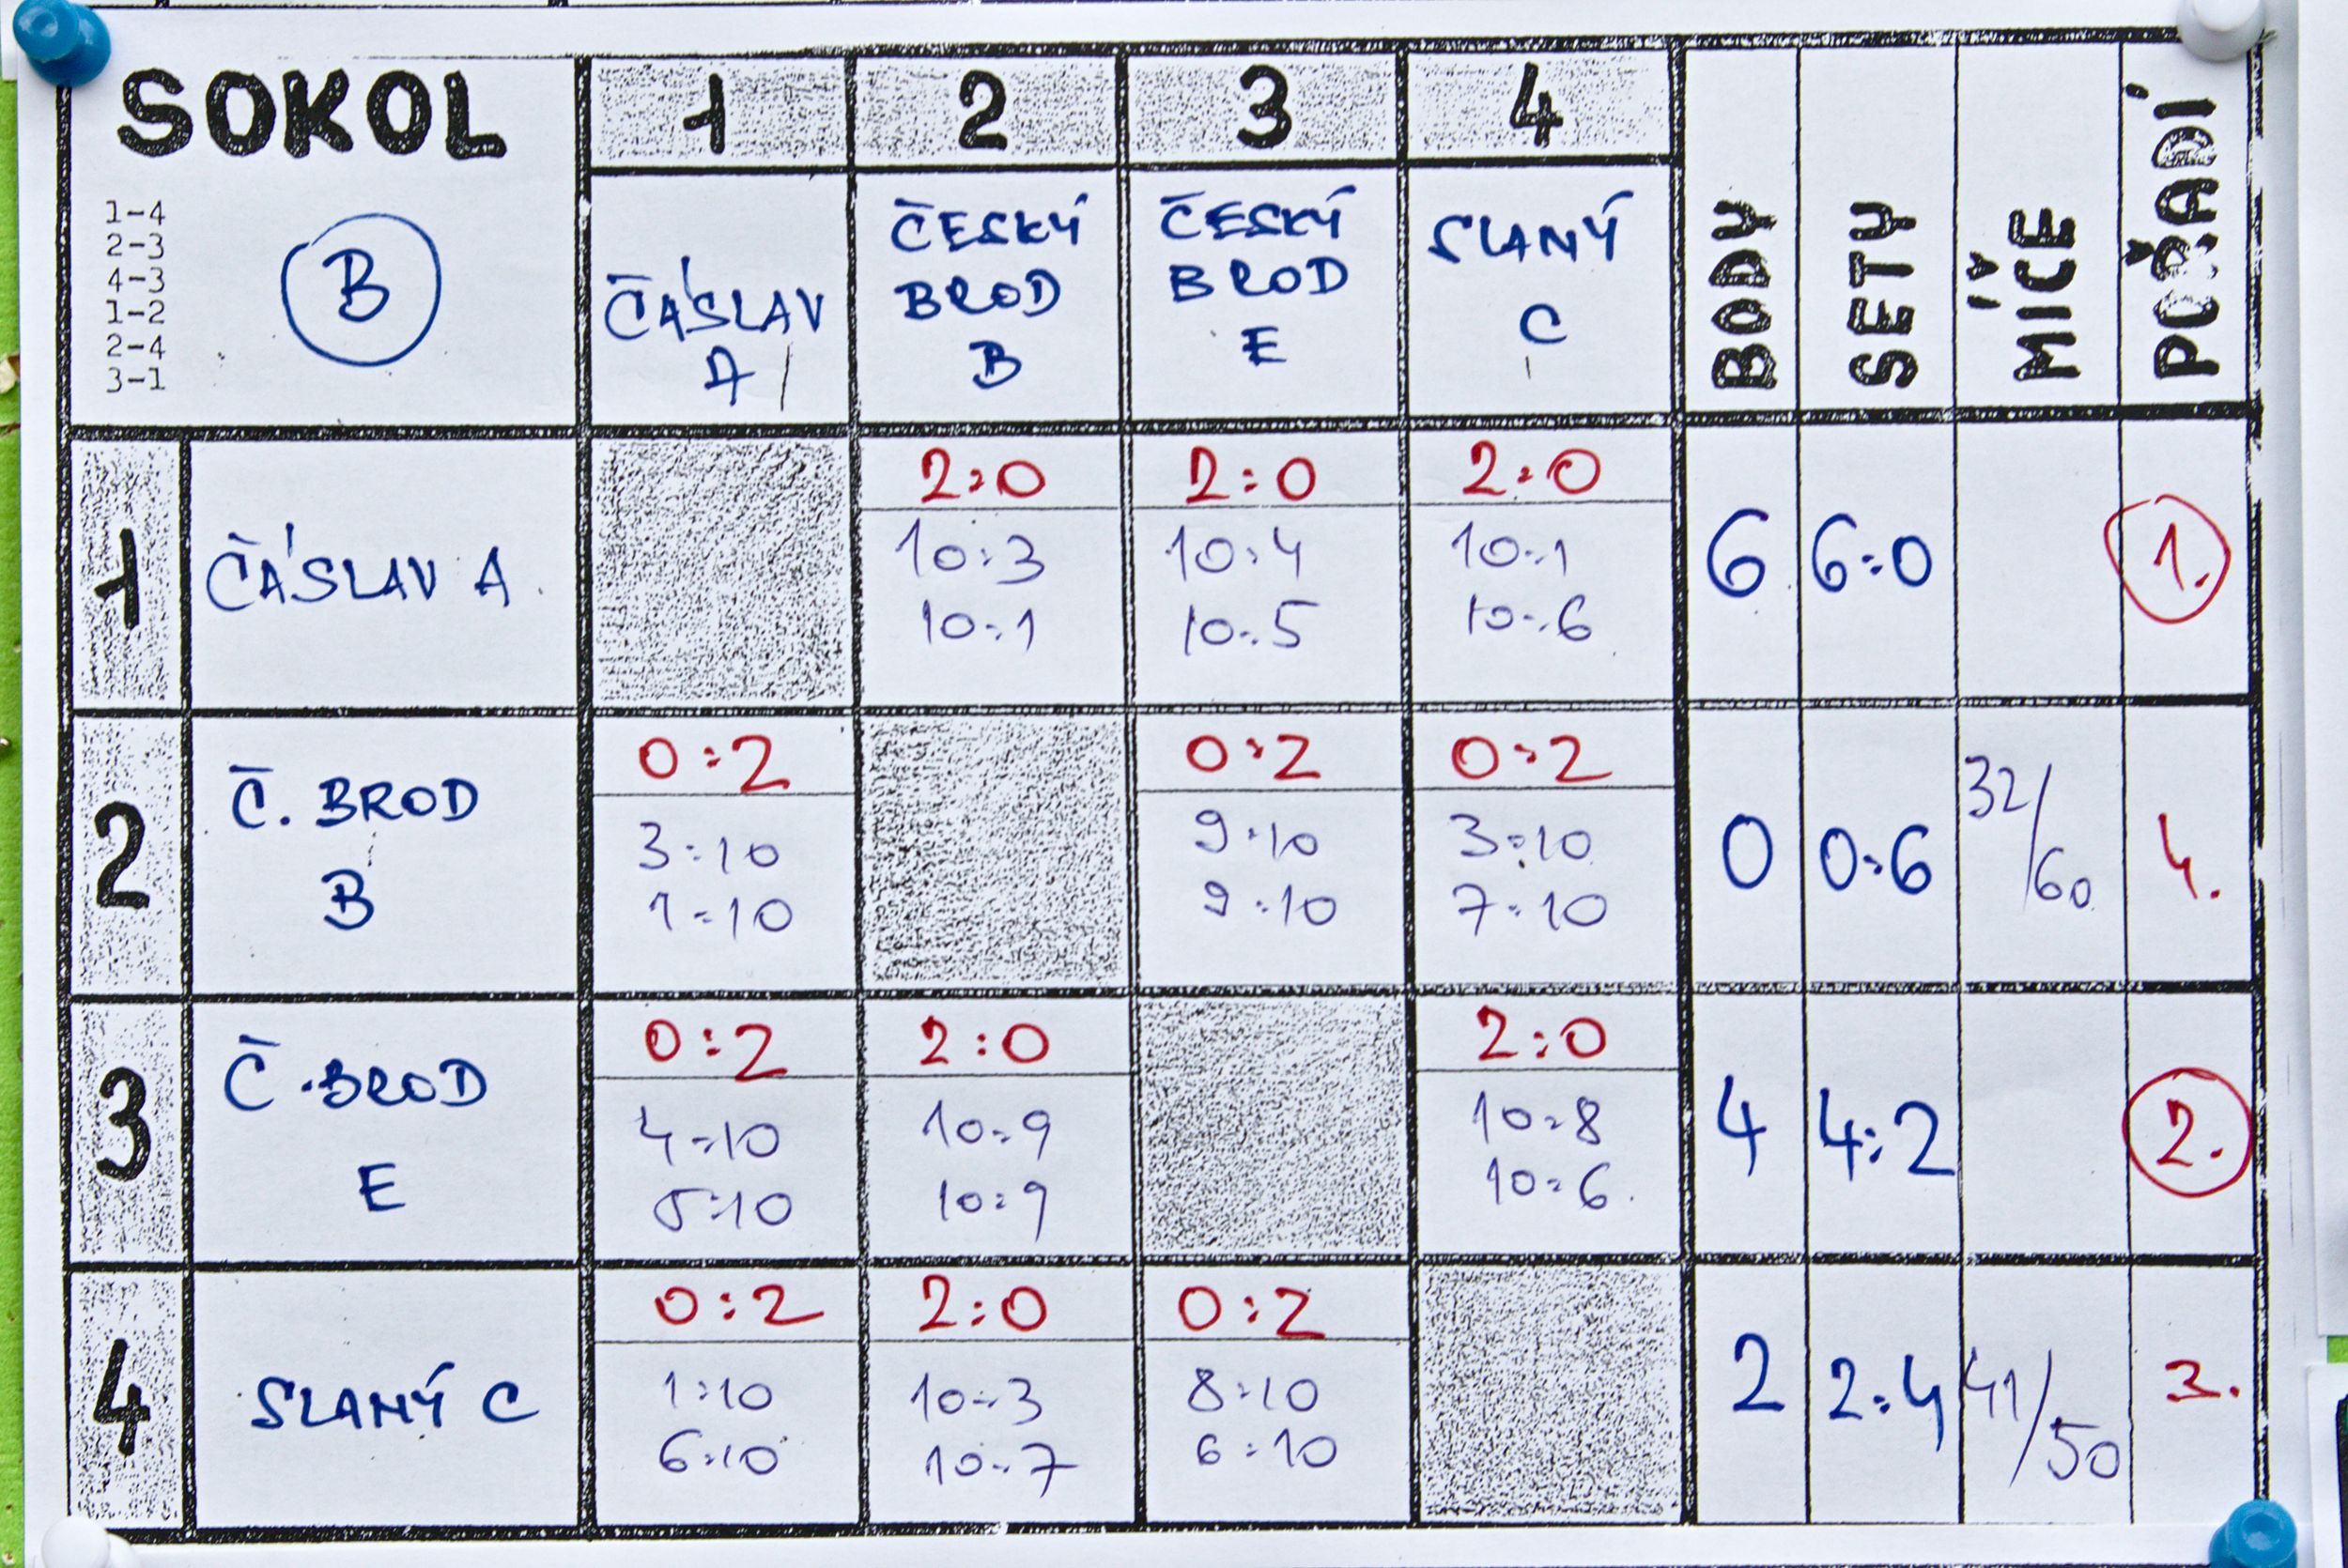 SOKOL
1 2 3 4
1-4
2-3
4-3
1-2
2-4
3-1
B
ČÁSLAV
A
ČESKÝ
BROD
B
ČESKÝ
BROD
E
SLANÝ
C
BODY
SETY
MÍČE
POŘADÍ
1 ČÁSLAV A
2:0 2:0 2:0
10:3 10:4 10:1
10:1 10:5 10:6
6 6:0 1.
2 Č. BROD
B
0:2 0:2 0:2
3:10 9:10 3:10
1:10 9:10 7:10
0 0:6 32/60 4.
3 Č. BROD
E
0:2 2:0 2:0
4:10 10:9 10:8
5:10 10:9 10:6
4 4:2 2.
4 SLANÝ C
0:2 2:0 0:2
1:10 10:3 8:10
6:10 10:7 6:10
2 2:4 41/50 3.